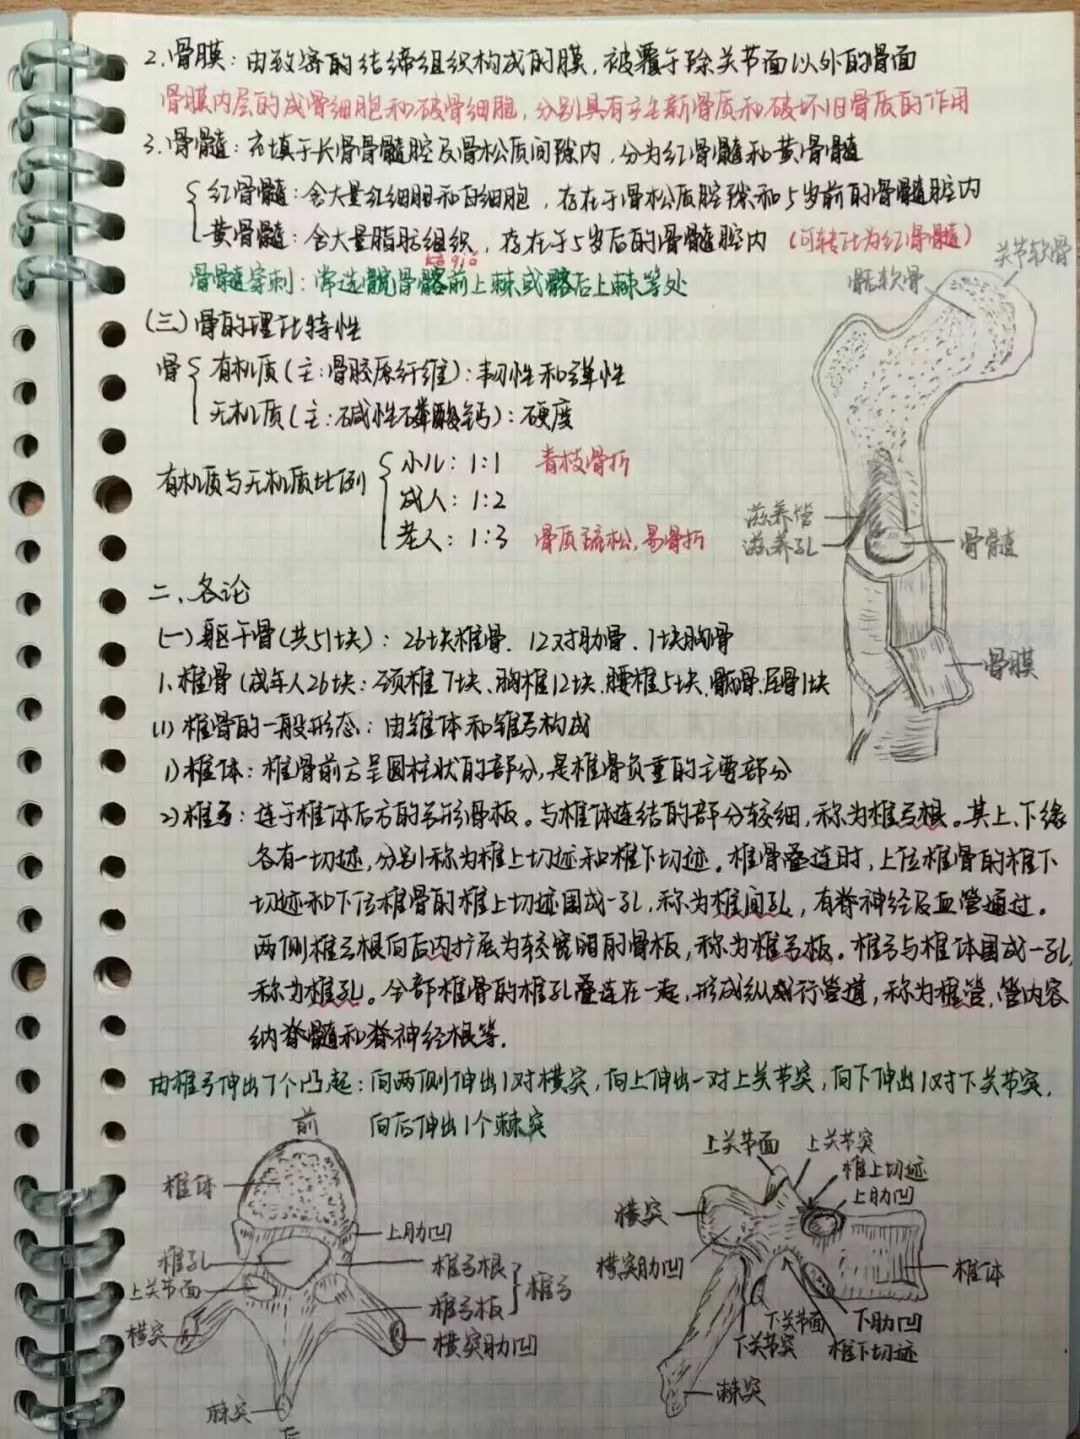 2.骨膜：由致密的结缔组织构成的膜，被覆于除关节面以外的骨面
骨膜内层的成骨细胞和破骨细胞，分别具有产生新骨质和破坏旧骨质的作用
3.骨髓：充填于长骨骨髓腔及骨松质间隙内，分为红骨髓和黄骨髓
红骨髓：含大量红细胞和白细胞，存在于骨松质腔隙和5岁前的骨髓腔内
黄骨髓：含大量脂肪组织，存在于5岁后的骨髓腔内（可转化为红骨髓）
骨髓穿刺：常选髋骨髂前上棘或髂后上棘等处
关节软骨
骺软骨
(三)骨的理化特性
骨
有机质(主:骨胶原纤维):韧性和弹性
无机质(主:碱性磷酸钙):硬度
有机质与无机质比例
小儿：1:1 青枝骨折
成人：1:2
老人：1:3 骨质疏松,易骨折
滋养管
滋养孔
骨髓
骨膜
二、各论
(一)躯干骨(共51块)：26块椎骨．12对肋骨．1块胸骨
1.椎骨(成年人26块：颈椎7块、胸椎12块、腰椎5块、骶骨、尾骨1块
(1)椎骨的一般形态：由锥体和锥弓构成
1)椎体：椎骨前方呈圆柱状的部分,是椎骨负重的主要部分
2)椎弓：连于椎体后方的弓形骨板。与椎体连结的部分较细,称为椎弓根。其上、下缘
各有一切迹,分别称为椎上切迹和椎下切迹．椎骨叠连时,上位椎骨的椎下
切迹和下位椎骨的椎上切迹围成一孔,称为椎间孔,有脊神经及血管通过．
两侧椎弓根向后内扩展为较宽阔的骨板,称为椎弓板．椎弓与椎体围成一孔,
称为椎孔。全部椎骨的椎孔叠连在一起,形成纵成行管道,称为椎管,管内容
纳脊髓和脊神经根等．
由椎弓伸出7个凸起：向两侧伸出1对横突,向上伸出一对上关节突,向下伸出1对下关节突,
向后伸出1个棘突
前
椎体
上肋凹
椎孔
椎弓根
椎弓
上关节面
椎弓板
横突
横突肋凹
棘突
后
上关节面
上关节突
椎上切迹
上肋凹
横突
横突肋凹
椎体
下关节面
下肋凹
下关节突
椎下切迹
棘突